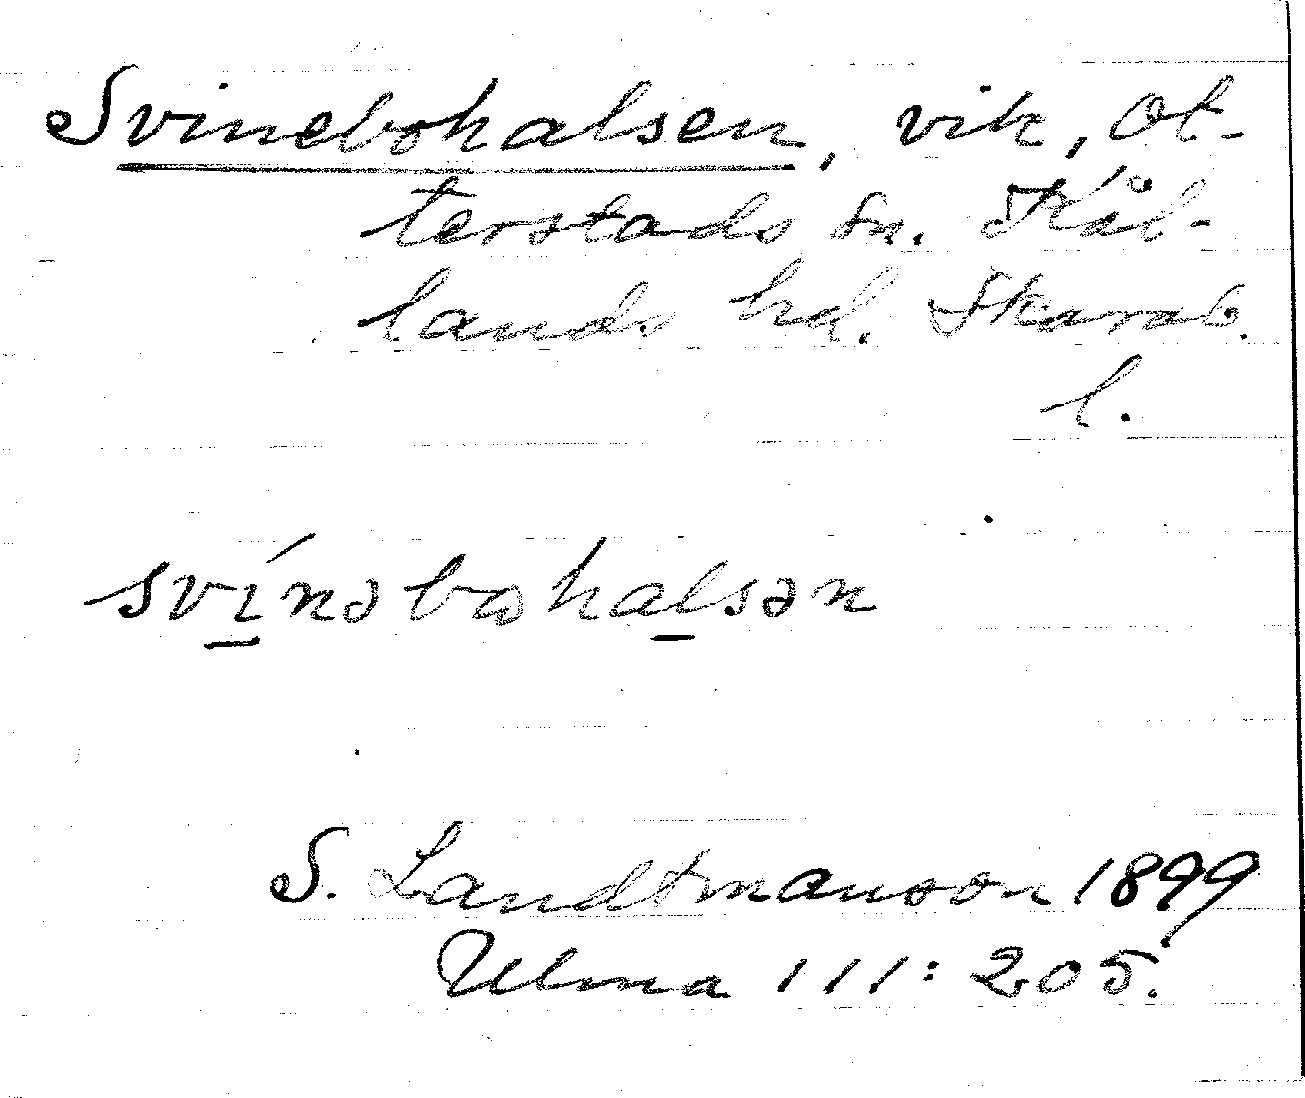 Svinebohalsen, vik, Ot-
terstads sn. Kål-
lands hd. Skarab.
l.
svínəbohalsən
S. Landtmanson 1899
Ulma 111:205.